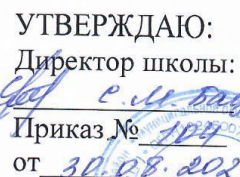 УТВЕРЖДАЮ:
Директор школы:
С.М.
Приказ № 104
от 30.08.202